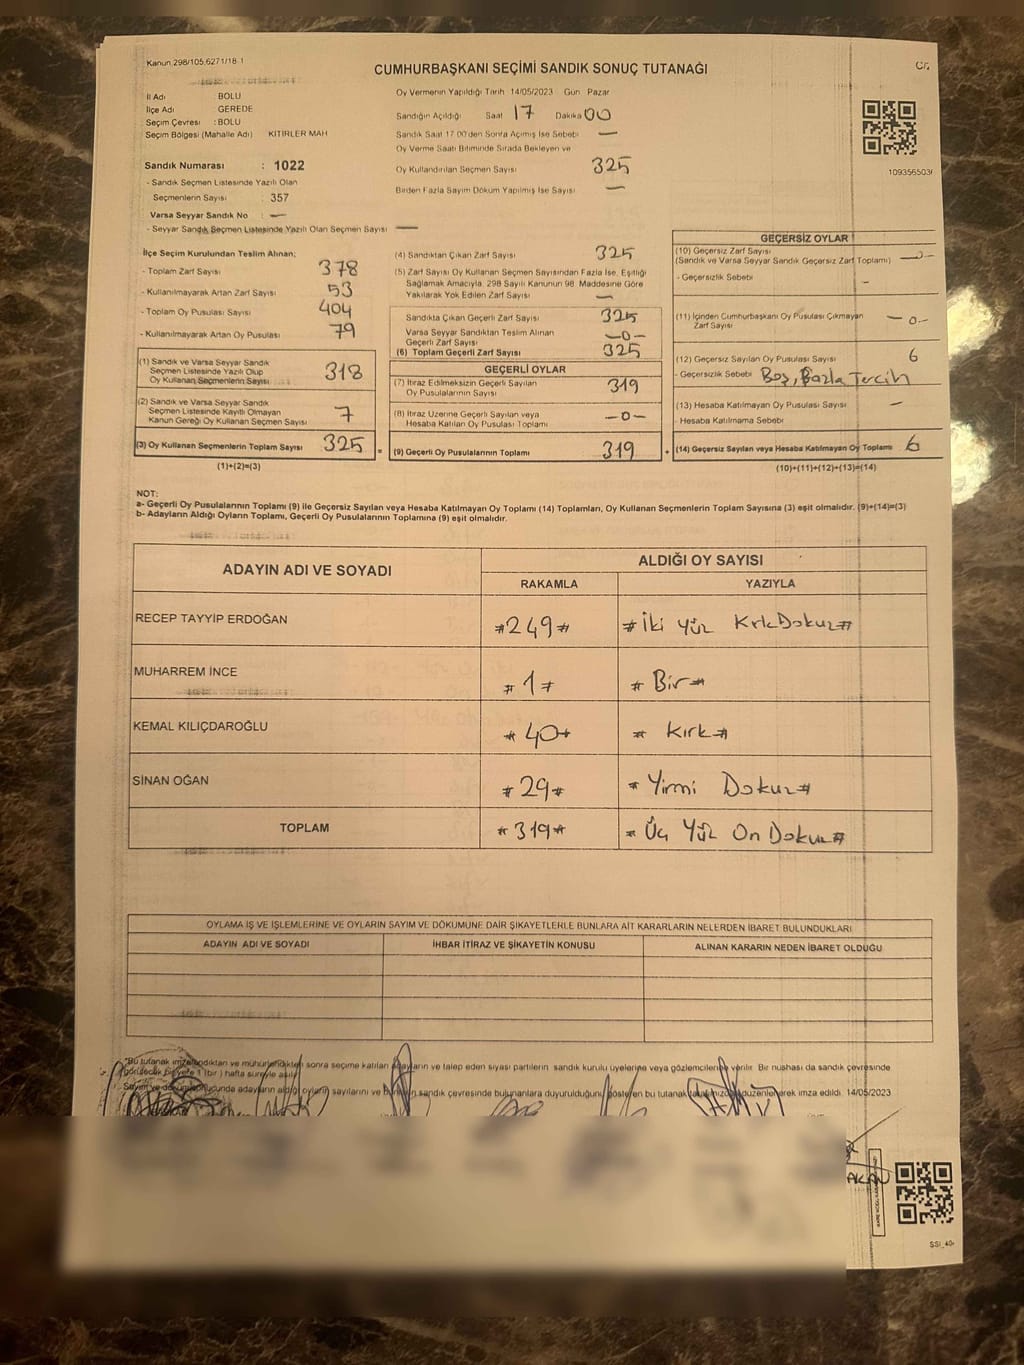 Kanun 298/105,6271/18-1
CUMHURBAŞKANI SEÇİMİ SANDIK SONUÇ TUTANAĞI
İl Adı BOLU
İlçe Adı GEREDE
Seçim Çevresi : BOLU
Seçim Bölgesi (Mahalle Adı) KİTİRLER MAH
Sandık Numarası : 1022
- Sandık Seçmen Listesinde Yazılı Olan
Seçmenlerin Sayısı : 357
Varsa Seyyar Sandık No : —
- Seyyar Sandık Seçmen Listesinde Yazılı Olan Seçmen Sayısı —
Oy Vermenin Yapıldığı Tarih 14/05/2023 Gün Pazar
Sandığın Açıldığı Saat 17 Dakika 00
Sandık Saat 17.00'den Sonra Açılmış İse Sebebi —
Oy Verme Saati Bitiminde Sırada Bekleyen ve
Oy Kullandırılan Seçmen Sayısı 325
Birden Fazla Sayım Döküm Yapılmış İse Sayısı —
1093565036
İlçe Seçim Kurulundan Teslim Alınan;
- Toplam Zarf Sayısı 378
- Kullanılmayarak Artan Zarf Sayısı 53
- Toplam Oy Pusulası Sayısı 404
- Kullanılmayarak Artan Oy Pusulası 79
(1) Sandık ve Varsa Seyyar Sandık
Seçmen Listesinde Yazılı Olup
Oy Kullanan Seçmenlerin Sayısı 318
(2) Sandık ve Varsa Seyyar Sandık
Seçmen Listesinde Kayıtlı Olmayan
Kanun Gereği Oy Kullanan Seçmen Sayısı 7
(3) Oy Kullanan Seçmenlerin Toplam Sayısı 325
(1)+(2)=(3)
(4) Sandıktan Çıkan Zarf Sayısı 325
(5) Zarf Sayısı Oy Kullanan Seçmen Sayısından Fazla İse, Eşitliği
Sağlamak Amacıyla, 298 Sayılı Kanunun 98. Maddesine Göre
Yakılarak Yok Edilen Zarf Sayısı —
Sandıkta Çıkan Geçerli Zarf Sayısı 325
Varsa Seyyar Sandıktan Teslim Alınan
Geçerli Zarf Sayısı —0—
(6) Toplam Geçerli Zarf Sayısı 325
GEÇERLİ OYLAR
(7) İtiraz Edilmeksizin Geçerli Sayılan
Oy Pusulalarının Sayısı 319
(8) İtiraz Üzerine Geçerli Sayılan veya
Hesaba Katılan Oy Pusulası Toplamı —0—
= (9) Geçerli Oy Pusulalarının Toplamı 319
GEÇERSİZ OYLAR
(10) Geçersiz Zarf Sayısı
(Sandık ve Varsa Seyyar Sandık Geçersiz Zarf Toplamı) —0—
- Geçersizlik Sebebi -
(11) İçinden Cumhurbaşkanı Oy Pusulası Çıkmayan
Zarf Sayısı —0—
(12) Geçersiz Sayılan Oy Pusulası Sayısı 6
- Geçersizlik Sebebi Boş, Bazla Tercih
(13) Hesaba Katılmayan Oy Pusulası Sayısı —
- Hesaba Katılmama Sebebi
+ (14) Geçersiz Sayılan veya Hesaba Katılmayan Oy Toplamı 6
(10)+(11)+(12)+(13)=(14)
NOT:
a- Geçerli Oy Pusulalarının Toplamı (9) ile Geçersiz Sayılan veya Hesaba Katılmayan Oy Toplamı (14) Toplamları, Oy Kullanan Seçmenlerin Toplam Sayısına (3) eşit olmalıdır. (9)+(14)=(3)
b- Adayların Aldığı Oyların Toplamı, Geçerli Oy Pusulalarının Toplamına (9) eşit olmalıdır.
ADAYIN ADI VE SOYADI ALDIĞI OY SAYISI
RAKAMLA YAZIYLA
RECEP TAYYİP ERDOĞAN #249# #İki Yüz KrkDokuz#
MUHARREM İNCE #1# # Bir #
KEMAL KILIÇDAROĞLU #40# # Kırk #
SİNAN OĞAN #29# # Yirmi Dokuz#
TOPLAM #319# # Üç Yüz On Dokuz#
OYLAMA İŞ VE İŞLEMLERİNE VE OYLARIN SAYIM VE DÖKÜMÜNE DAİR ŞİKAYETLERLE BUNLARA AİT KARARLARIN NELERDEN İBARET BULUNDUKLARI
ADAYIN ADI VE SOYADI İHBAR İTİRAZ VE ŞİKAYETİN KONUSU ALINAN KARARIN NEDEN İBARET OLDUĞU
"Bu tutanak imzalandıktan ve mühürlendikten sonra seçime katılan adayların ve talep eden siyasi partilerin sandık kurulu üyelerine veya gözlemcilerine verilir. Bir nüshası da sandık çevresinde
görülecek bir yere 1 (bir) hafta süreyle asılır.
Sayım ve dökümü sonucunda adayların aldığı oyların sayılarını ve bunların sandık çevresinde bulunanlara duyurulduğunu gösteren bu tutanak tarafımızca düzenlenerek imza edildi. 14/05/2023